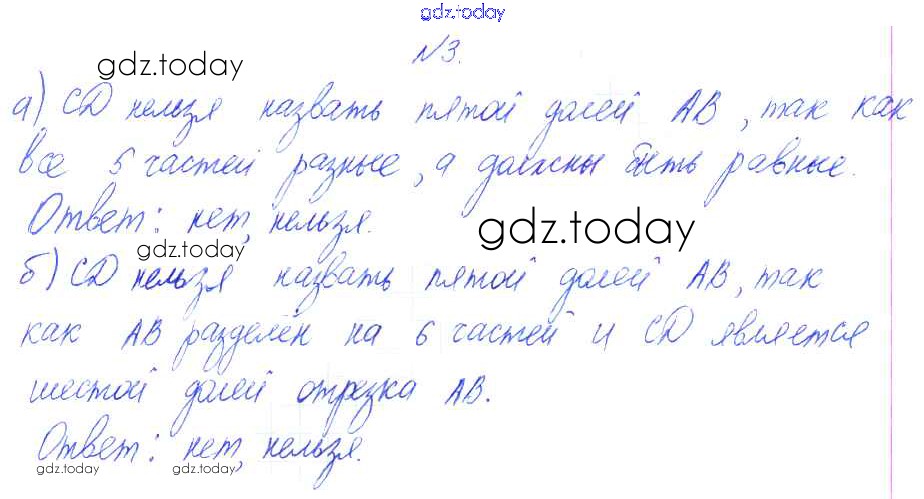 gdz.today
№3.
gdz.today
а) CD нельзя назвать пятой долей AB, так как
все 5 частей разные, а должны быть равные.
Ответ: нет, нельзя.
gdz.today
gdz.today
б) CD нельзя назвать пятой долей AB, так
как AB разделён на 6 частей и CD является
шестой долей отрезка AB.
Ответ: нет, нельзя.
gdz.today
gdz.today